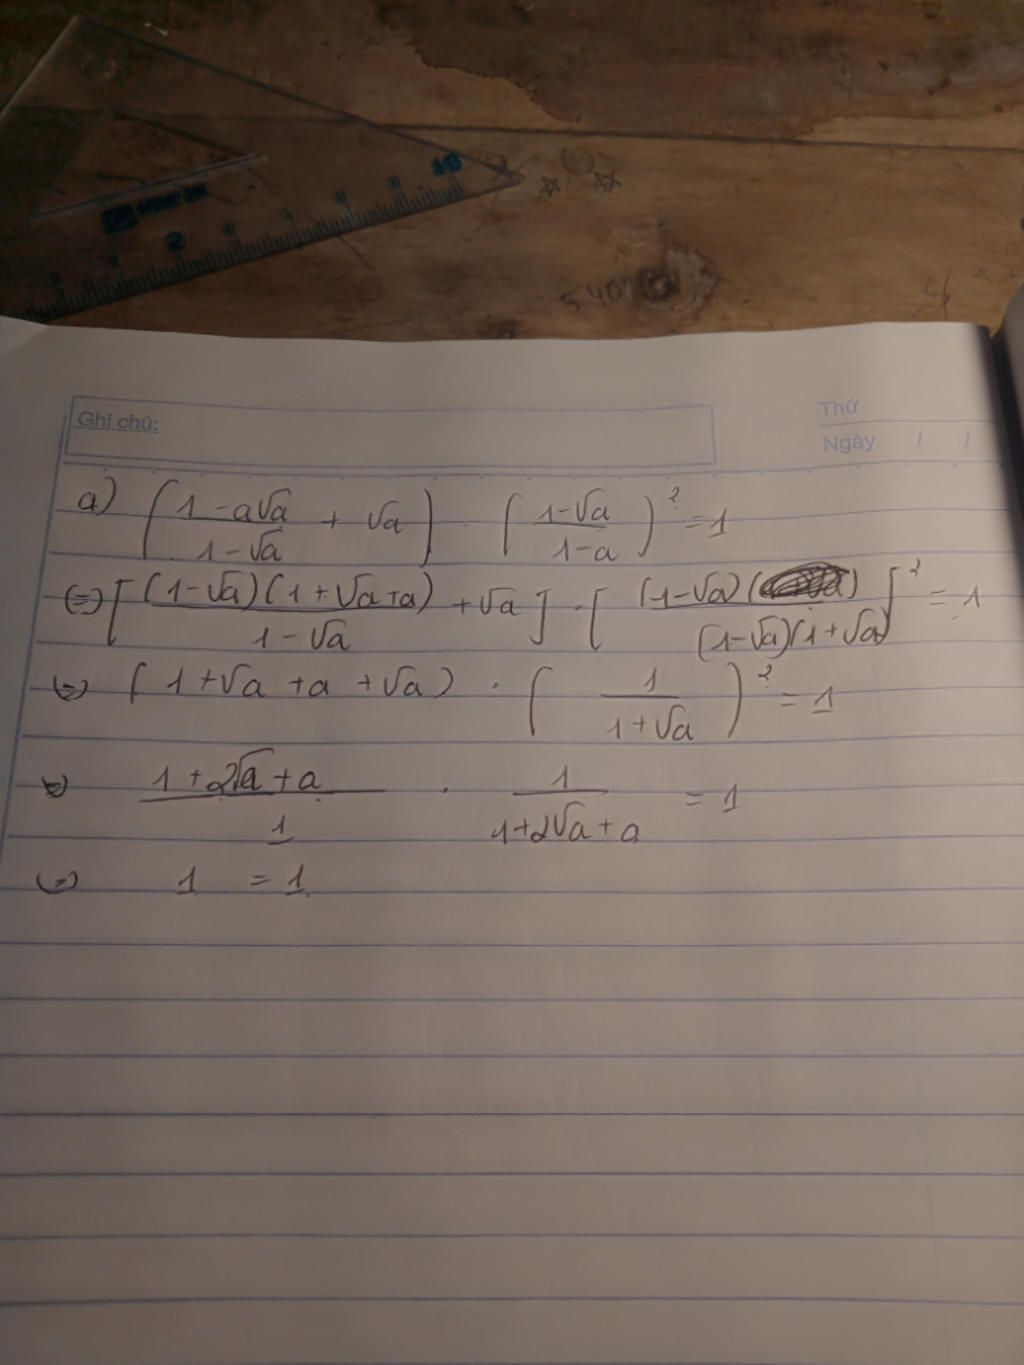 10
5
5 40
Ghi chú:
Thứ
Ngày / /
a) ( (1-a√a)/(1-√a) + √a ) · ( (1-√a)/(1-a) )² = 1
(=) [ (1-√a)(1+√a+a)/(1-√a) + √a ] · [ (1-√a)/((1-√a)(1+√a)) ]² = 1
(=) (1+√a+a+√a) · ( 1/(1+√a) )² = 1
(=) (1+2√a+a)/1 · 1/(1+2√a+a) = 1
(=) 1 = 1